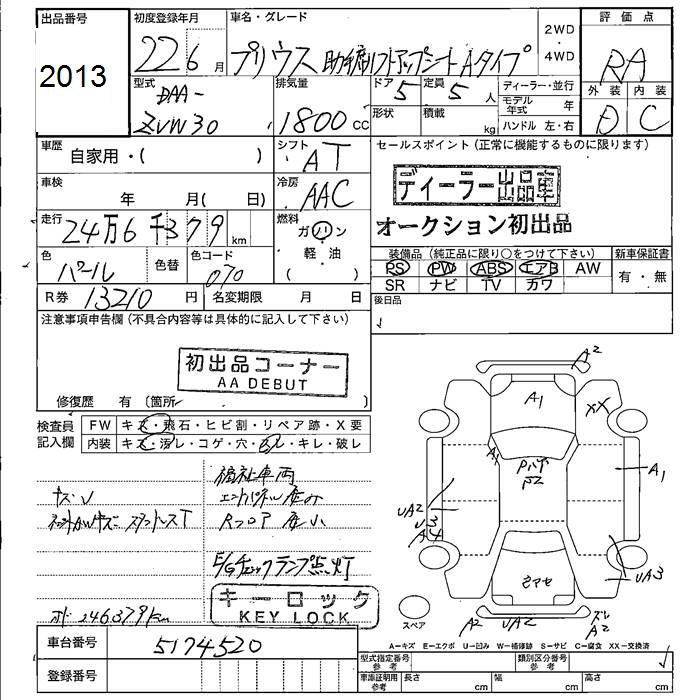 出品番号
2013
初度登録年月
22 6月
車名・グレード
プリウス 助手席リフトアップシートAタイプ
2WD
・
4WD
評価点
RA
型式
DAA-
ZVW30
排気量
1800cc
ドア
5
定員
5人
形状
積載
kg
ディーラー・並行
モデル年式 年
ハンドル 左・右
外装 内装
D C
車歴
自家用・( )
シフト
AT
セールスポイント (正常に機能するものに限ります)
ディーラー出品車
オークション初出品
車検
年 月( 日)
冷房
AAC
走行
24万6千379km
燃料
ガソリン
・
軽・油
( )
色
パール
色替
色コード
070
装備品 (純正品に限り○をつけて下さい)
新車保証書
PS PW ABS エアB AW
SR ナビ TV カワ
有・無
R券
13210円
名変期限 月 日
後日品
注意事項申告欄 (不具合内容等は具体的に記入して下さい)
初出品コーナー
AA DEBUT
修復歴 有 (箇所 )
検査員
記入欄
FW キズ・飛石・ヒビ割・リペア跡・X要
内装 キズ・汚レ・コゲ・穴・ ・キレ・破レ
福祉車両
キズ
Rフロア
E/Gチェックランプ点灯
キーロック
KEY LOCK
246379km
車台番号
5174520
登録番号
A2
A1
XX
A1
A1
UA2
U3
A4
UA3
A2
UA2
ズレ
A2
スペア
A-キズ E-エクボ U-凹み W-補修跡 S-サビ C-腐食 XX-交換済
型式指定番号
参考
類別区分番号
参考
車庫証明用
参考
長さ cm
幅 cm
高さ cm